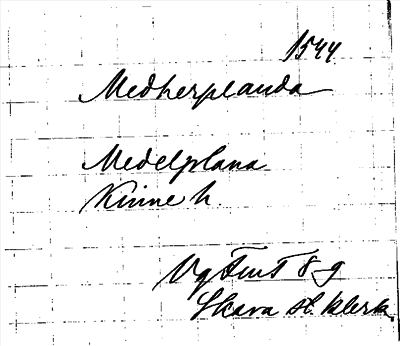 1544
Medherplanda
Medelplana
Kinne h.
Vg Fmt 8 g
Skara st. klerk.